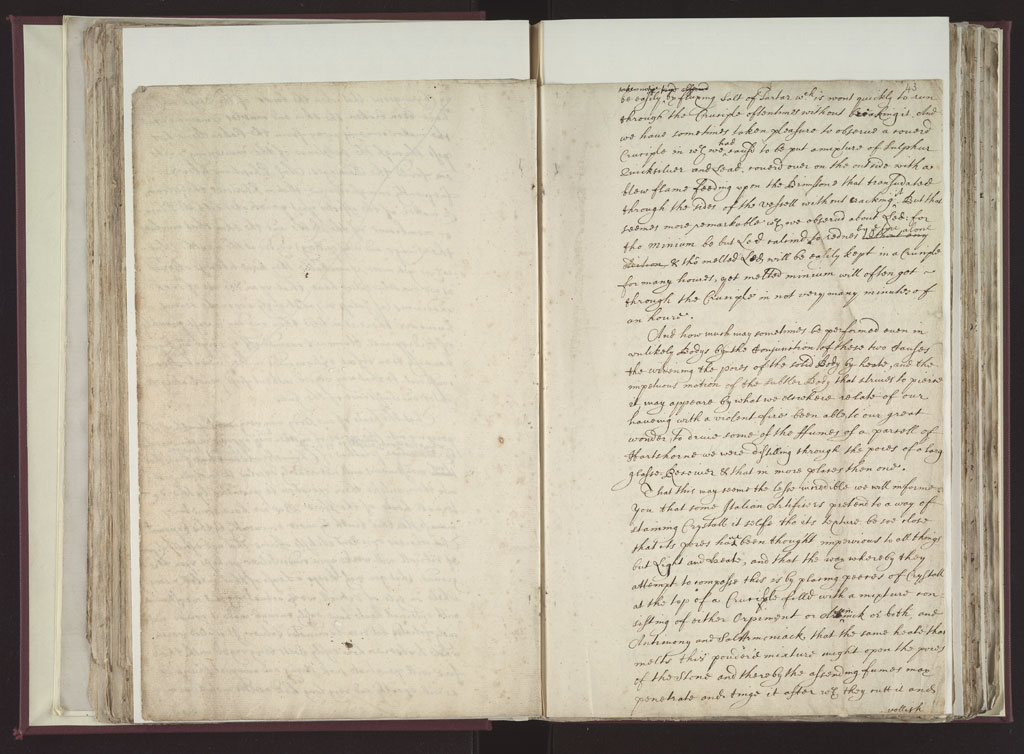 43
be easily by fluxing Salt of Tartar wch is wont quickly to run
through the Crucible oftentimes without breaking it. And
we have sometimes taken pleasure to observe a coverd
had
Crucible in wch we causd to be put a mixture of Sulphur
Quicksilver and Lead, coverd over on the outside with a
blew flame feeding upon the Brimstone that transudated
through the sides of the vessell without cracking it. But that
seemes more remarkable wch we observd about Led: for
by ye fire alone
tho minium be but Led calcind to rednes
& tho melted Led will be easily kept in a Crucible
for many houres, yet melted minium will often get
through the Crucible in not very many minutes of
an houre.
And how much may sometimes be performed even in
unlikely Bodys by the Conjunction of these two Causes
the widening the pores of the solid Body by heate, and the
impetuous motion of the subtler Body that strives to pierce
it, may appeare by what we elswhere relate of our
haveing with a violent fire been able, to our great
wonder, to drive some of the ffumes of a parsell of
Hartshorne we were distilling through the pores of a larg
glasse-Receiver & that in more places then one.
That this may seeme the lesse incredible we will informe
You that some Italian Artificers pretend to a way of
staining Crystall it selfe tho its texture be soe close
that its pores have been thought impervious to all things
but Light and Heate, and that the way whereby they
attempt to compasse this is by placing peeces of Crystall
at the top of a Crucible filld with a mixture con-
sisting of either Orpiment or or both, and
Antimony and Sal Armoniack that the same heate that
melts this pouder'd mixture might open the pores
of the Stone and thereby the ascending fumes may
penetrate and tinge it after wch they cutt it and